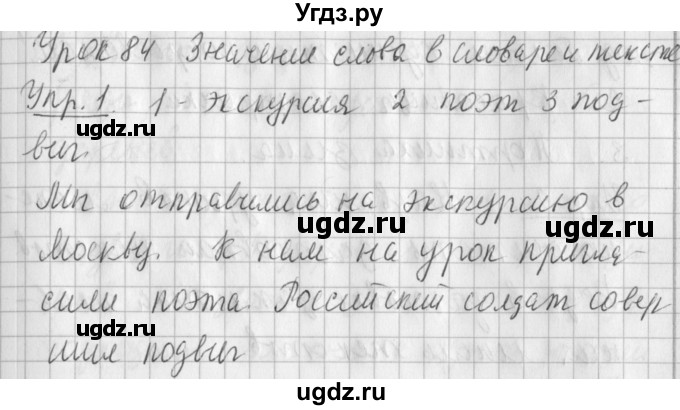 Угдз.ру
Урок 84 Значение слова в словаре и тексте
Упр. 1. 1 - экскурсия 2 поэт 3 под-
виг.
ugdz.ru
ugdz.ru
Мы отправились на экскурсию в
ugdz.ru
Москву. К нам на урок пригла-
сили поэта. Российский солдат совер
ugdz.ru
ugdz.ru
шил подвиг
ugdz.ru
ugdz.ru